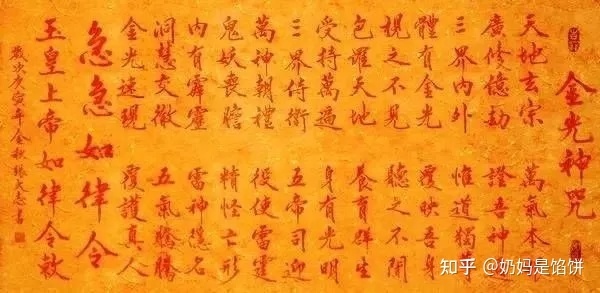 金光神咒
天地玄宗 萬氣本
廣修億劫 證吾神
三界內外 惟道獨
體有金光 覆映吾身
視之不見 聽之不聞
包羅天地 養育群生
受持萬遍 身有光明
三界侍衛 五帝司迎
萬神朝禮 役使雷霆
鬼妖喪膽 精怪亡形
內有霹靂 雷神隱名
洞慧交徹 五氣騰騰
金光速現 覆護真人
急急如律令
玉皇上帝如律令敕
歲次庚寅年金秋張文志書
知乎 @奶妈是馅饼